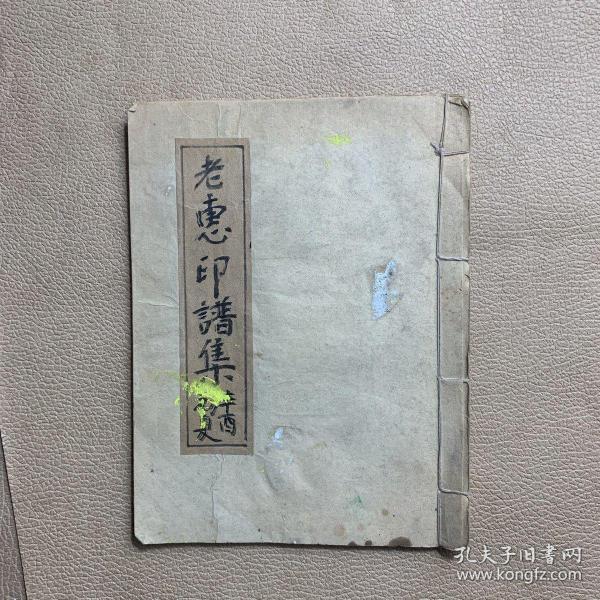 老惪印譜集
辛酉
夏
孔夫子旧书网
www.kongfz.com